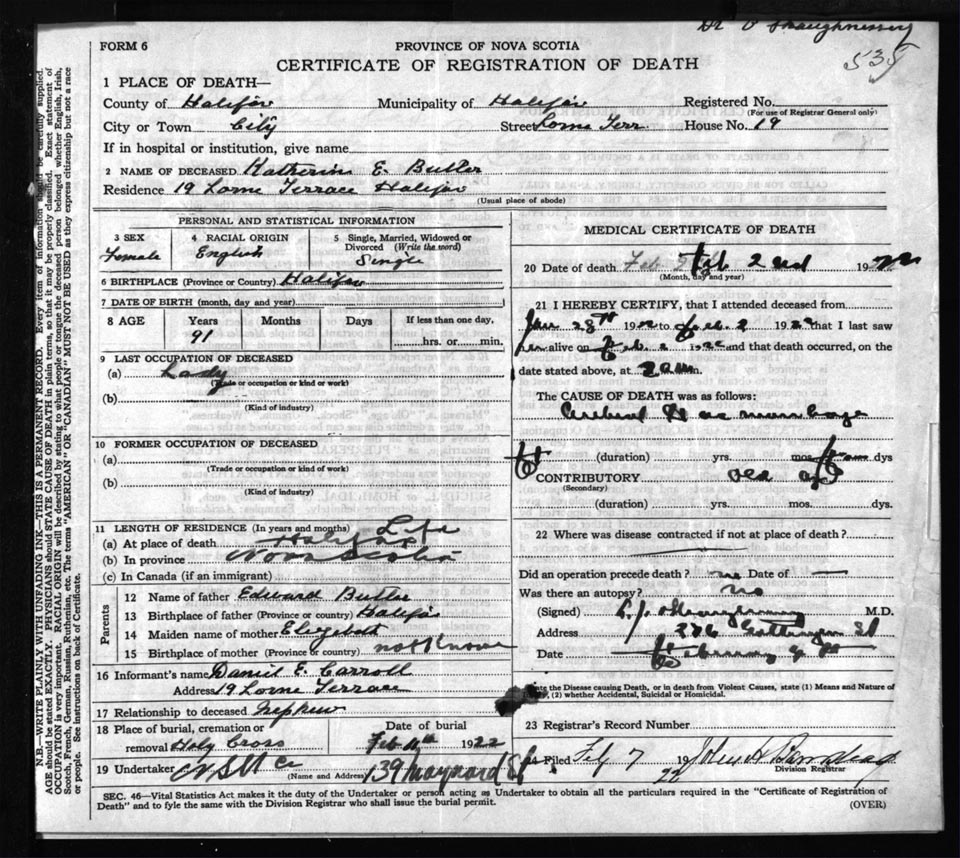 Dr O Shaughnessy
535
FORM 6
PROVINCE OF NOVA SCOTIA
CERTIFICATE OF REGISTRATION OF DEATH
1 PLACE OF DEATH—
County of Halifax Municipality of Halifax Registered No.
(For use of Registrar General only)
City or Town City Street Lorne Terr. House No. 19
If in hospital or institution, give name
2 NAME OF DECEASED Katherine E. Butler
Residence 19 Lorne Terrace Halifax
(Usual place of abode)
PERSONAL AND STATISTICAL INFORMATION
3 SEX 4 RACIAL ORIGIN 5 Single, Married, Widowed or
Divorced (Write the word)
Female English Single
6 BIRTHPLACE (Province or Country) Halifax
7 DATE OF BIRTH (month, day and year)
8 AGE Years Months Days If less than one day,
91 hrs. or min.
9 LAST OCCUPATION OF DECEASED
(a) Lady
(Trade or occupation or kind or work)
(b)
(Kind of industry)
10 FORMER OCCUPATION OF DECEASED
(a)
(Trade or occupation or kind of work)
(b)
(Kind of industry)
11 LENGTH OF RESIDENCE (In years and months) Life
(a) At place of death Halifax
(b) In province Nova Scotia
(c) In Canada (if an immigrant)
Parents
12 Name of father Edward Butler
13 Birthplace of father (Province or country) Halifax
14 Maiden name of mother Elizabeth
15 Birthplace of mother (Province or country) not Known
16 Informant's name Daniel E. Carroll
Address 19 Lorne Terrace
17 Relationship to deceased Nephew
18 Place of burial, cremation or Date of burial
removal Holy Cross Feb 1922
19 Undertaker
(Name and Address) 139 Maynard St
MEDICAL CERTIFICATE OF DEATH
20 Date of death Feb 2nd 19
(Month, day and year)
21 I HEREBY CERTIFY, that I attended deceased from
Jan 28th 1922 to Feb. 2 1922 that I last saw
her alive on Feb. 2 1922 and that death occurred, on the
date stated above, at 2 am.
The CAUSE OF DEATH was as follows:
Cerebral Haemorrhage
(duration) yrs. mos. dys
CONTRIBUTORY old age
(Secondary)
(duration) yrs. mos. dys.
22 Where was disease contracted if not at place of death?
Did an operation precede death? no Date of —
Was there an autopsy? no
(Signed) M.D.
Address 276 Gottingen St
Date February
State the Disease causing Death, or in death from Violent Causes, state (1) Means and Nature of
(2) whether Accidental, Suicidal or Homicidal.
23 Registrar's Record Number
24 Filed Feb 7 1922 John A
Division Registrar
SEC. 46—Vital Statistics Act makes it the duty of the Undertaker or person acting as Undertaker to obtain all the particulars required in the "Certificate of Registration of
Death" and to fyle the same with the Division Registrar who shall issue the burial permit.
(OVER)
N.B.—WRITE PLAINLY WITH UNFADING INK—THIS IS A PERMANENT RECORD. Every item of information should be carefully supplied.
AGE should be stated EXACTLY. PHYSICIANS should STATE CAUSE OF DEATH in plain terms, so that it may be properly classified. Exact statement of
OCCUPATION is very important. RACIAL ORIGIN will be described by stating to what people or tongue the deceased person belonged whether English, Irish,
Scotch, French, German, Russian, Ruthenian, etc. The terms "AMERICAN" OR "CANADIAN" MUST NOT BE USED as they express citizenship but not a race
or people. See instructions on back of Certificate.